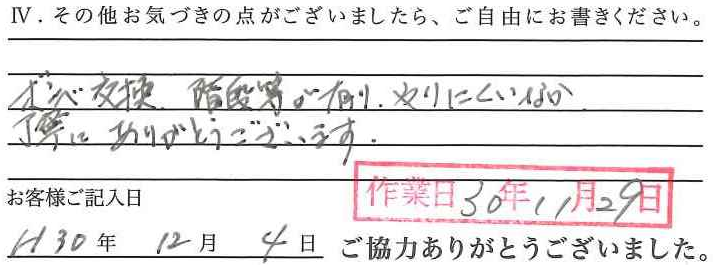 Ⅳ．その他お気づきの点がございましたら、ご自由にお書きください。
ボンベ交換、階段等が有り、やりにくいなか
丁寧にありがとうございます。
作業日30年11月29日
お客様ご記入日
H30年 12月 4日 ご協力ありがとうございました。